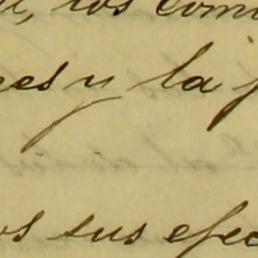 los com
es y la
os sus efec